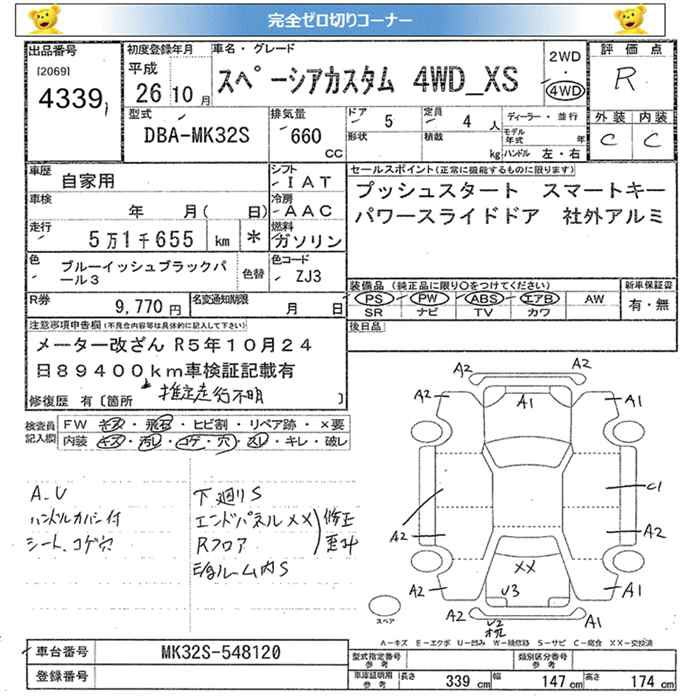 完全ゼロ切りコーナー
出品番号
[2069]
4339
初度登録年月
平成
26 10 月
車名・グレード
スペーシアカスタム 4WD_XS
2WD
・
4WD
評価点
R
外装 内装
C C
型式
DBA-MK32S
排気量
660
CC
ドア 5
形状
定員 4 人
積載 kg
ディーラー・並行
モデル年式 年
ハンドル 左・右
車歴
自家用
シフト
IAT
車検
年 月( 日)
冷房
AAC
走行
5万1千655 km *
燃料
ガソリン
色
ブルーイッシュブラックパール3
色替
色コード
ZJ3
R券
9,770 円
名変通知期限
月 日
セールスポイント(正常に機能するものに限ります)
プッシュスタート スマートキー
パワースライドドア 社外アルミ
装備品 (純正品に限り○をつけてください)
PS PW ABS エアB AW
SR ナビ TV カワ
新車保証書
有・無
後日品
注意事項申告欄(不具合内容等は具体的に記入して下さい)
メーター改ざん R5年10月24
日89400km車検証記載有
推定走行不明
修復歴 有〔箇所 〕
検査員記入欄
FW キズ・飛石・ヒビ割・リペア跡・×要
内装 キズ・汚レ・コゲ・穴・スレ・キレ・破レ
A-V
ハンドルカバー付
シート、コゲ穴
下廻りS
エンドパネル XX
Rフロア
修正
歪み
ルーム内S
A2 A2
A2 A1 A1
C1
A2 A2
XX
A2 U3 A1
U2 A1
スペア
A-キズ E-エクボ U-凹み W-補修跡 S-サビ C-腐食 XX-交換済
車台番号
MK32S-548120
登録番号
型式指定番号
参考
類別区分番号
参考
車庫証明用
参考
長さ 339 cm
幅 147 cm
高さ 174 cm